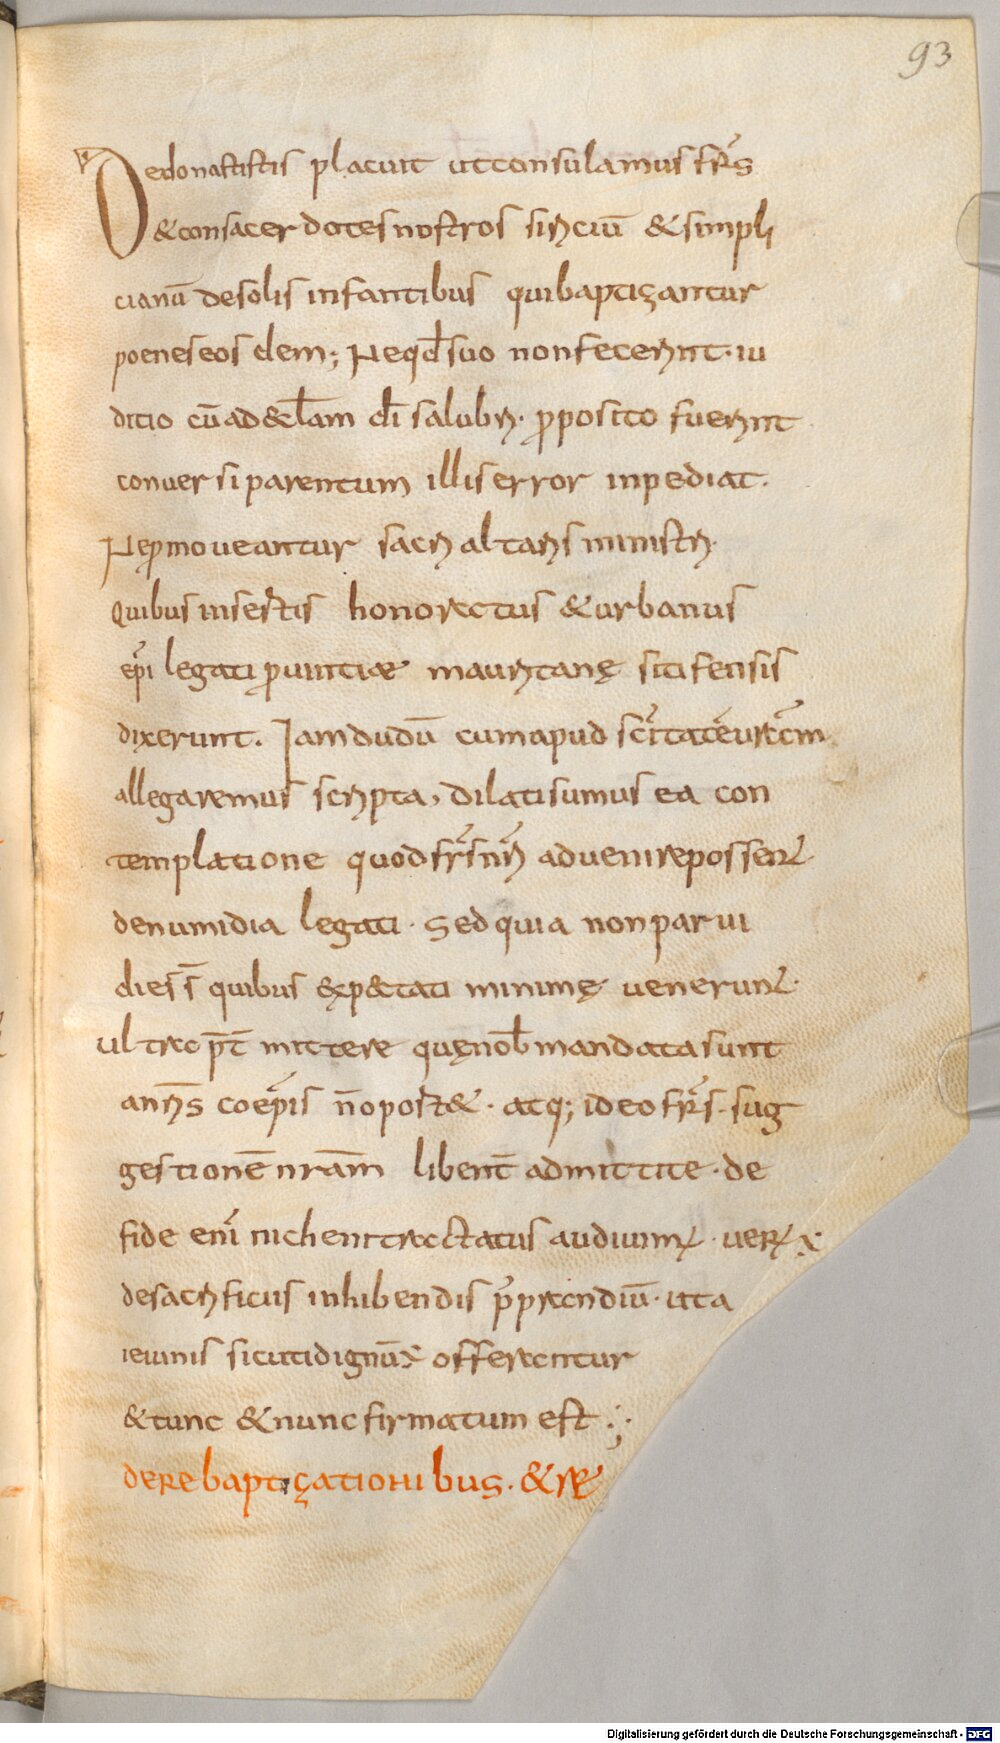 93
Dedonastistis placuit utconsulamus fr̄s
&consacerdotesnostros siriciū &simpli
cianū desolis infantibus quibaptizantur
poeneseos dem; Neqd̄suo nonfecerint· iu
ditio cū ad&cl̄am dī salubri· pposito fuerint
conuersi parentum illis error inpediat·
Nepmoueantur sacri altaris ministri·
Quibus insertis honoratus &urbanus
ep̄i legati puintiae mauritanę sitifensis
dixerunt. Iamdudū cumapud sc̄itatēurām
allegaremus scripta, dilatisumus ea con
templatione quodfr̄snr̄i aduenirepossent·
denumidia legati· sed quia nonparui
diess̄ quibus exp&tati minimę uenerunt·
ultrap̄t̄ mittere quęnob̄mandatasunt
anr̄is coep̄is n̄oport&· atq; ideofr̄s· sug
gestionē nrām libent̄ admittite· de
fide enī nichenitractatus audiuim· uer
desacrificus inhibendis p̄prandiū· ita
ieiunis sicutidignū offerantur
&tunc &nuncfirmatum est
derebaptizationibus· &re
Digitalisierung gefördert durch die Deutsche Forschungsgemeinschaft - DFG